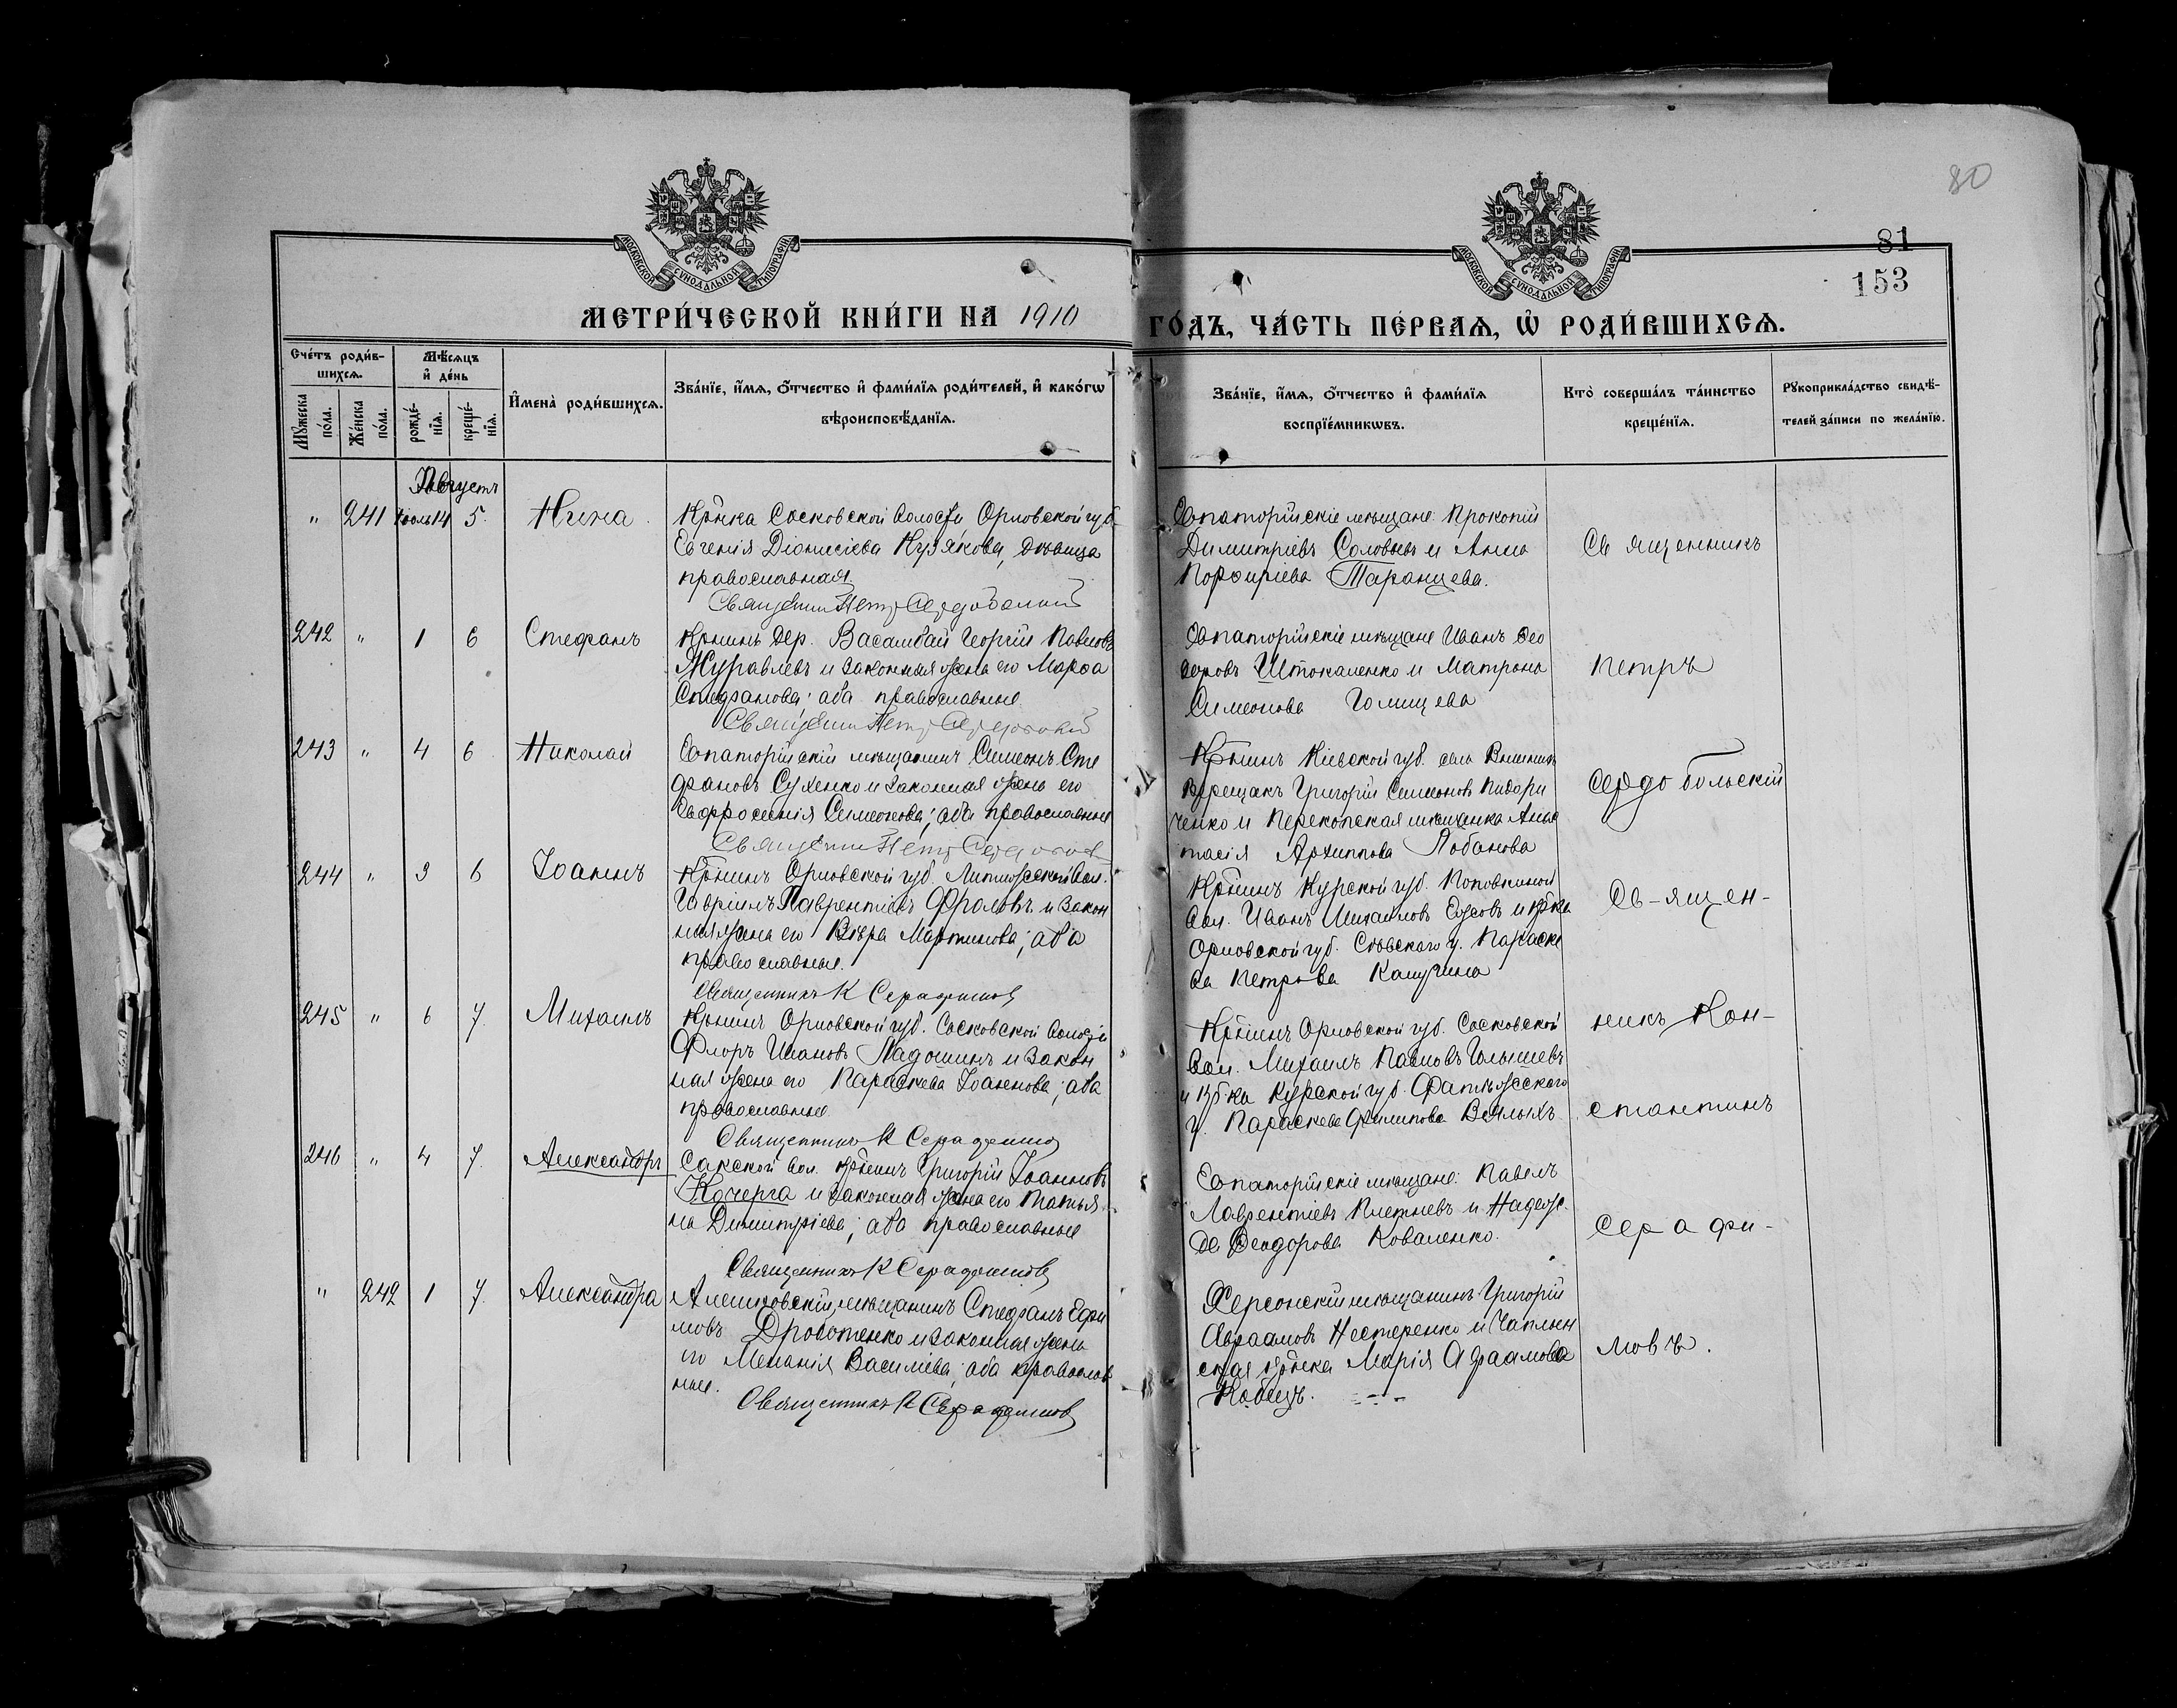 80
81
153
МОСКОВСКОЙ СУНОДАЛЬНОЙ ТИПОГРАФІИ
МОСКОВСКОЙ СУНОДАЛЬНОЙ ТИПОГРАФІИ
МЕТРИ́ЧЕСКОЙ КНИ́ГИ НА 1910 ГО́ДЪ, ЧА́СТЬ ПЕ́РВАѦ, Ѡ҆ РОДИ́ВШИХСѦ.
Сче́тъ роди́в-
шихсѧ.
Мꙋжеска
по́ла.
Же́нска
по́ла.
Мѣ́сѧцъ
и҆ де́нь
рожде́-
нїѧ.
креще́-
нїѧ.
И҆мена̀ роди́вшихсѧ.
Зва́нїе, и҆́мѧ, ѻ҆́тчество и҆ фами́лїѧ роди́телей, и҆ како́гѡ
вѣроисповѣ́данїѧ.
Зва́нїе, и҆́мѧ, ѻ҆́тчество и҆ фами́лїѧ
воспрїе́мникѡвъ.
Кто̀ соверша́лъ та́инство
креще́нїѧ.
Рꙋкоприкла́дство свидѣ́-
телей за́писи по жела́нїю.
Августъ
" 241 Іюль 14 5. Нина.
Кр-нка Сосковской волости Орловской губ
Евгенія Діонисіева Кузякова, дѣвица
православная.
Священни Петр Сердобольский
Евпаторійскіе мѣщане: Прокопій
Димитріевъ Соловьевъ и Анна
Порфиріева Таранцева.
Св ященникъ
242 " 1 6 Стефанъ
Кр-нинъ дер. Васамбай Георгій Павловъ
Журавлевъ и законная жена его Марѳа
Стефанова; оба православные
Священни Петр Сердобольский
Евпаторійскіе мѣщане Иванъ Ѳео
доровъ Штокаленко и Матрона
Симеонова Голищева
Петръ
243 " 4 6 Николай
Евпаторійскій мѣщанинъ Симеонъ Сте
фановъ Сухенко и законная жена его
Евфросинія Симеонова; оба православные
Священни Петр
Кр-нинъ Кіевской губ. села
Верещакъ Григорій Симеоновъ Пидори
ченко и Перекопская мѣщанка Анас
тасія Архиппова Лобанова
Сердо больскій
244 " 3 6 Іоаннъ
Кр-нинъ Орловской губ. вол.
Гавріилъ Лаврентіевъ Фроловъ и закон
ная жена его Вѣра Мартинова; оба
православные.
Священникъ К Серафимов
Кр-нинъ Курской губ. Поповкиной
вол. Иванъ Михаиловъ и кр-ка
Орловской губ. Сѣвскаго у. Параске
ва Петрова Калугина
Св-ящен-
245 " 6 7. Михаилъ
Кр-нинъ Орловской губ. Сосковской волости
Флоръ Ивановъ Ладошинъ и закон
ная жена его Параскева Іоаннова; оба
православные.
Священникъ К Серафимов
Кр-нинъ Орловской губ. Сосковской
вол. Михаилъ Павловъ Голышевъ
и кр-ка Курской губ. Фатежскаго
у. Параскева Филипова Бѣлыхъ.
никъ Кон-
стантинъ
246 " 4 7. Александръ
Сакской вол. кр-нинъ Григорій Іоанновъ
Кочерга и законная жена его Татья
на Димитріева; оба православные
Священникъ К Серафимов
Евпаторійскіе мѣщане: Павелъ
Лаврентіевъ Плетневъ и Надеж
да Ѳеодорова Коваленко.
Серафи-
" 242 1 7. Александра
Алешковскій мѣщанинъ Стефанъ Ефи
мовъ Дроботенко и законная жена
его Меланія Василіева; оба православ
ные.
Священникъ К Серафимов
Херсонскій мѣщанинъ Григорій
Авраамовъ Нестеренко и Чаплын
ская кр-нка Марія Авраамова
Кобецъ.
мовъ.